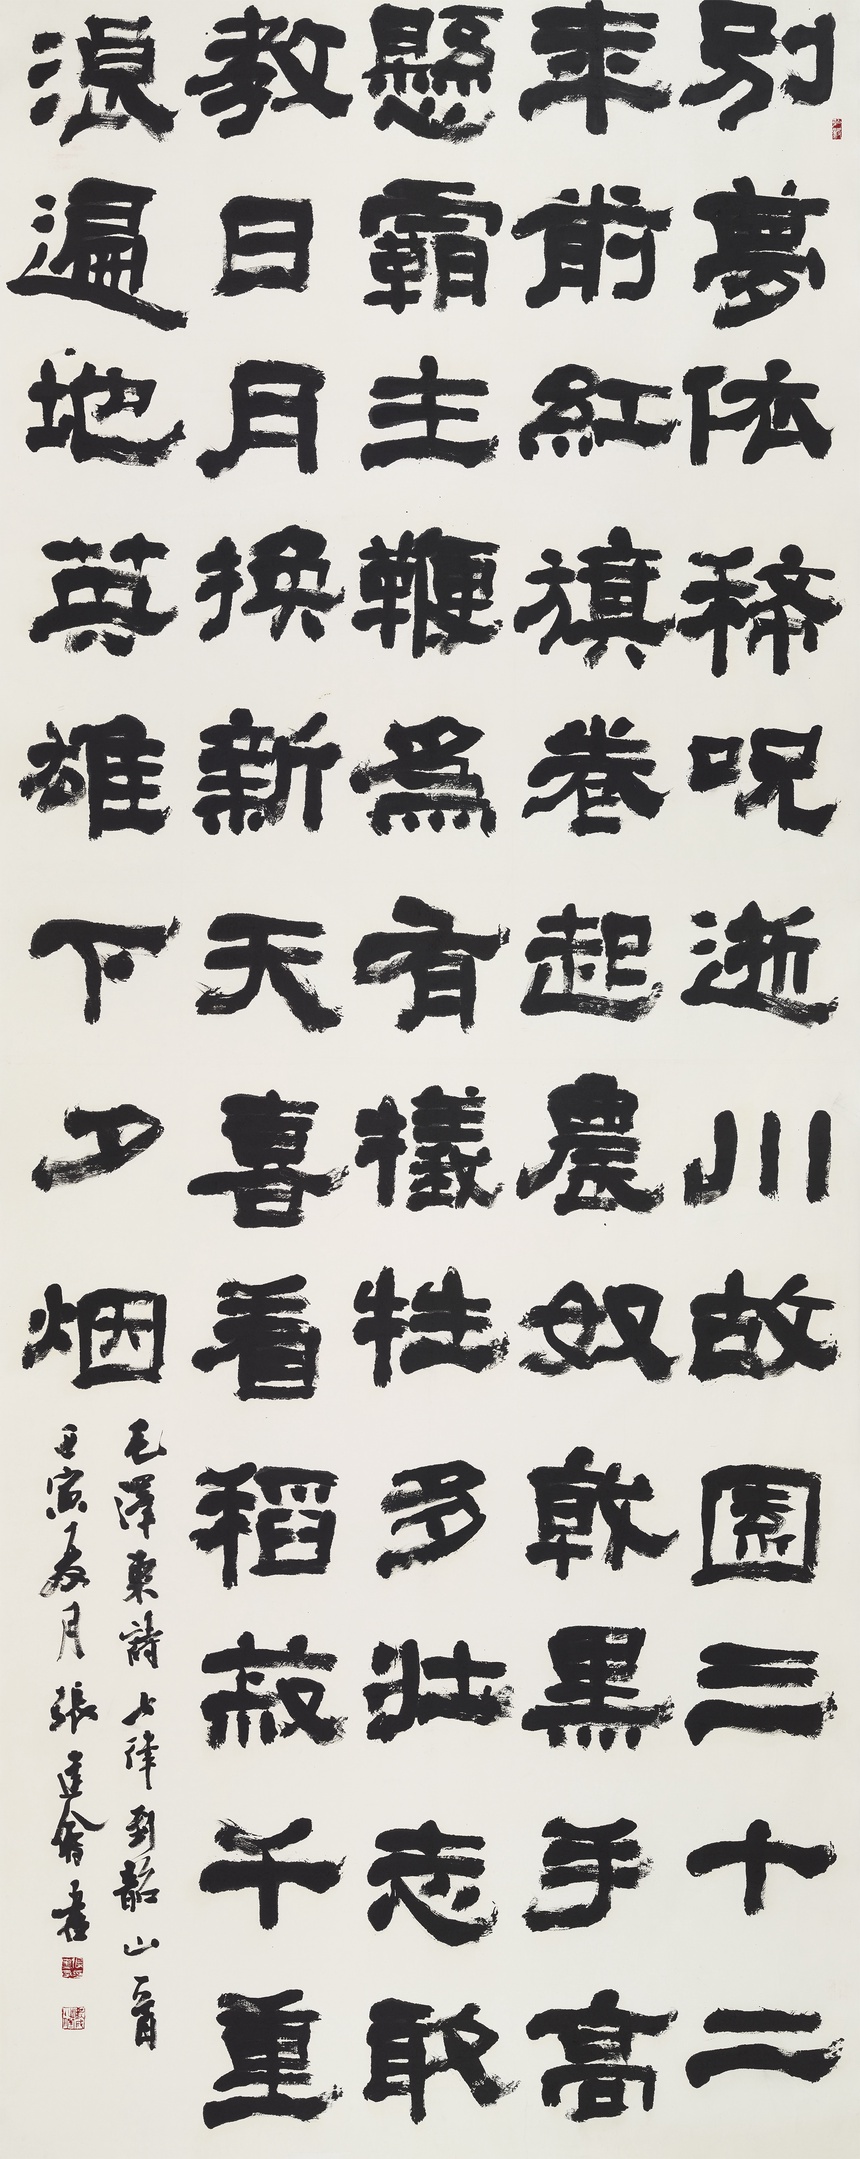 別夢依稀呪逝川故園三十二
年前紅旗卷起農奴戟黑手高
懸霸主鞭爲有犧牲多壯志敢
教日月換新天喜看稻菽千重
浪遍地英雄下夕烟
毛澤東詩七律到韶山一首
壬寅夏月張建會書